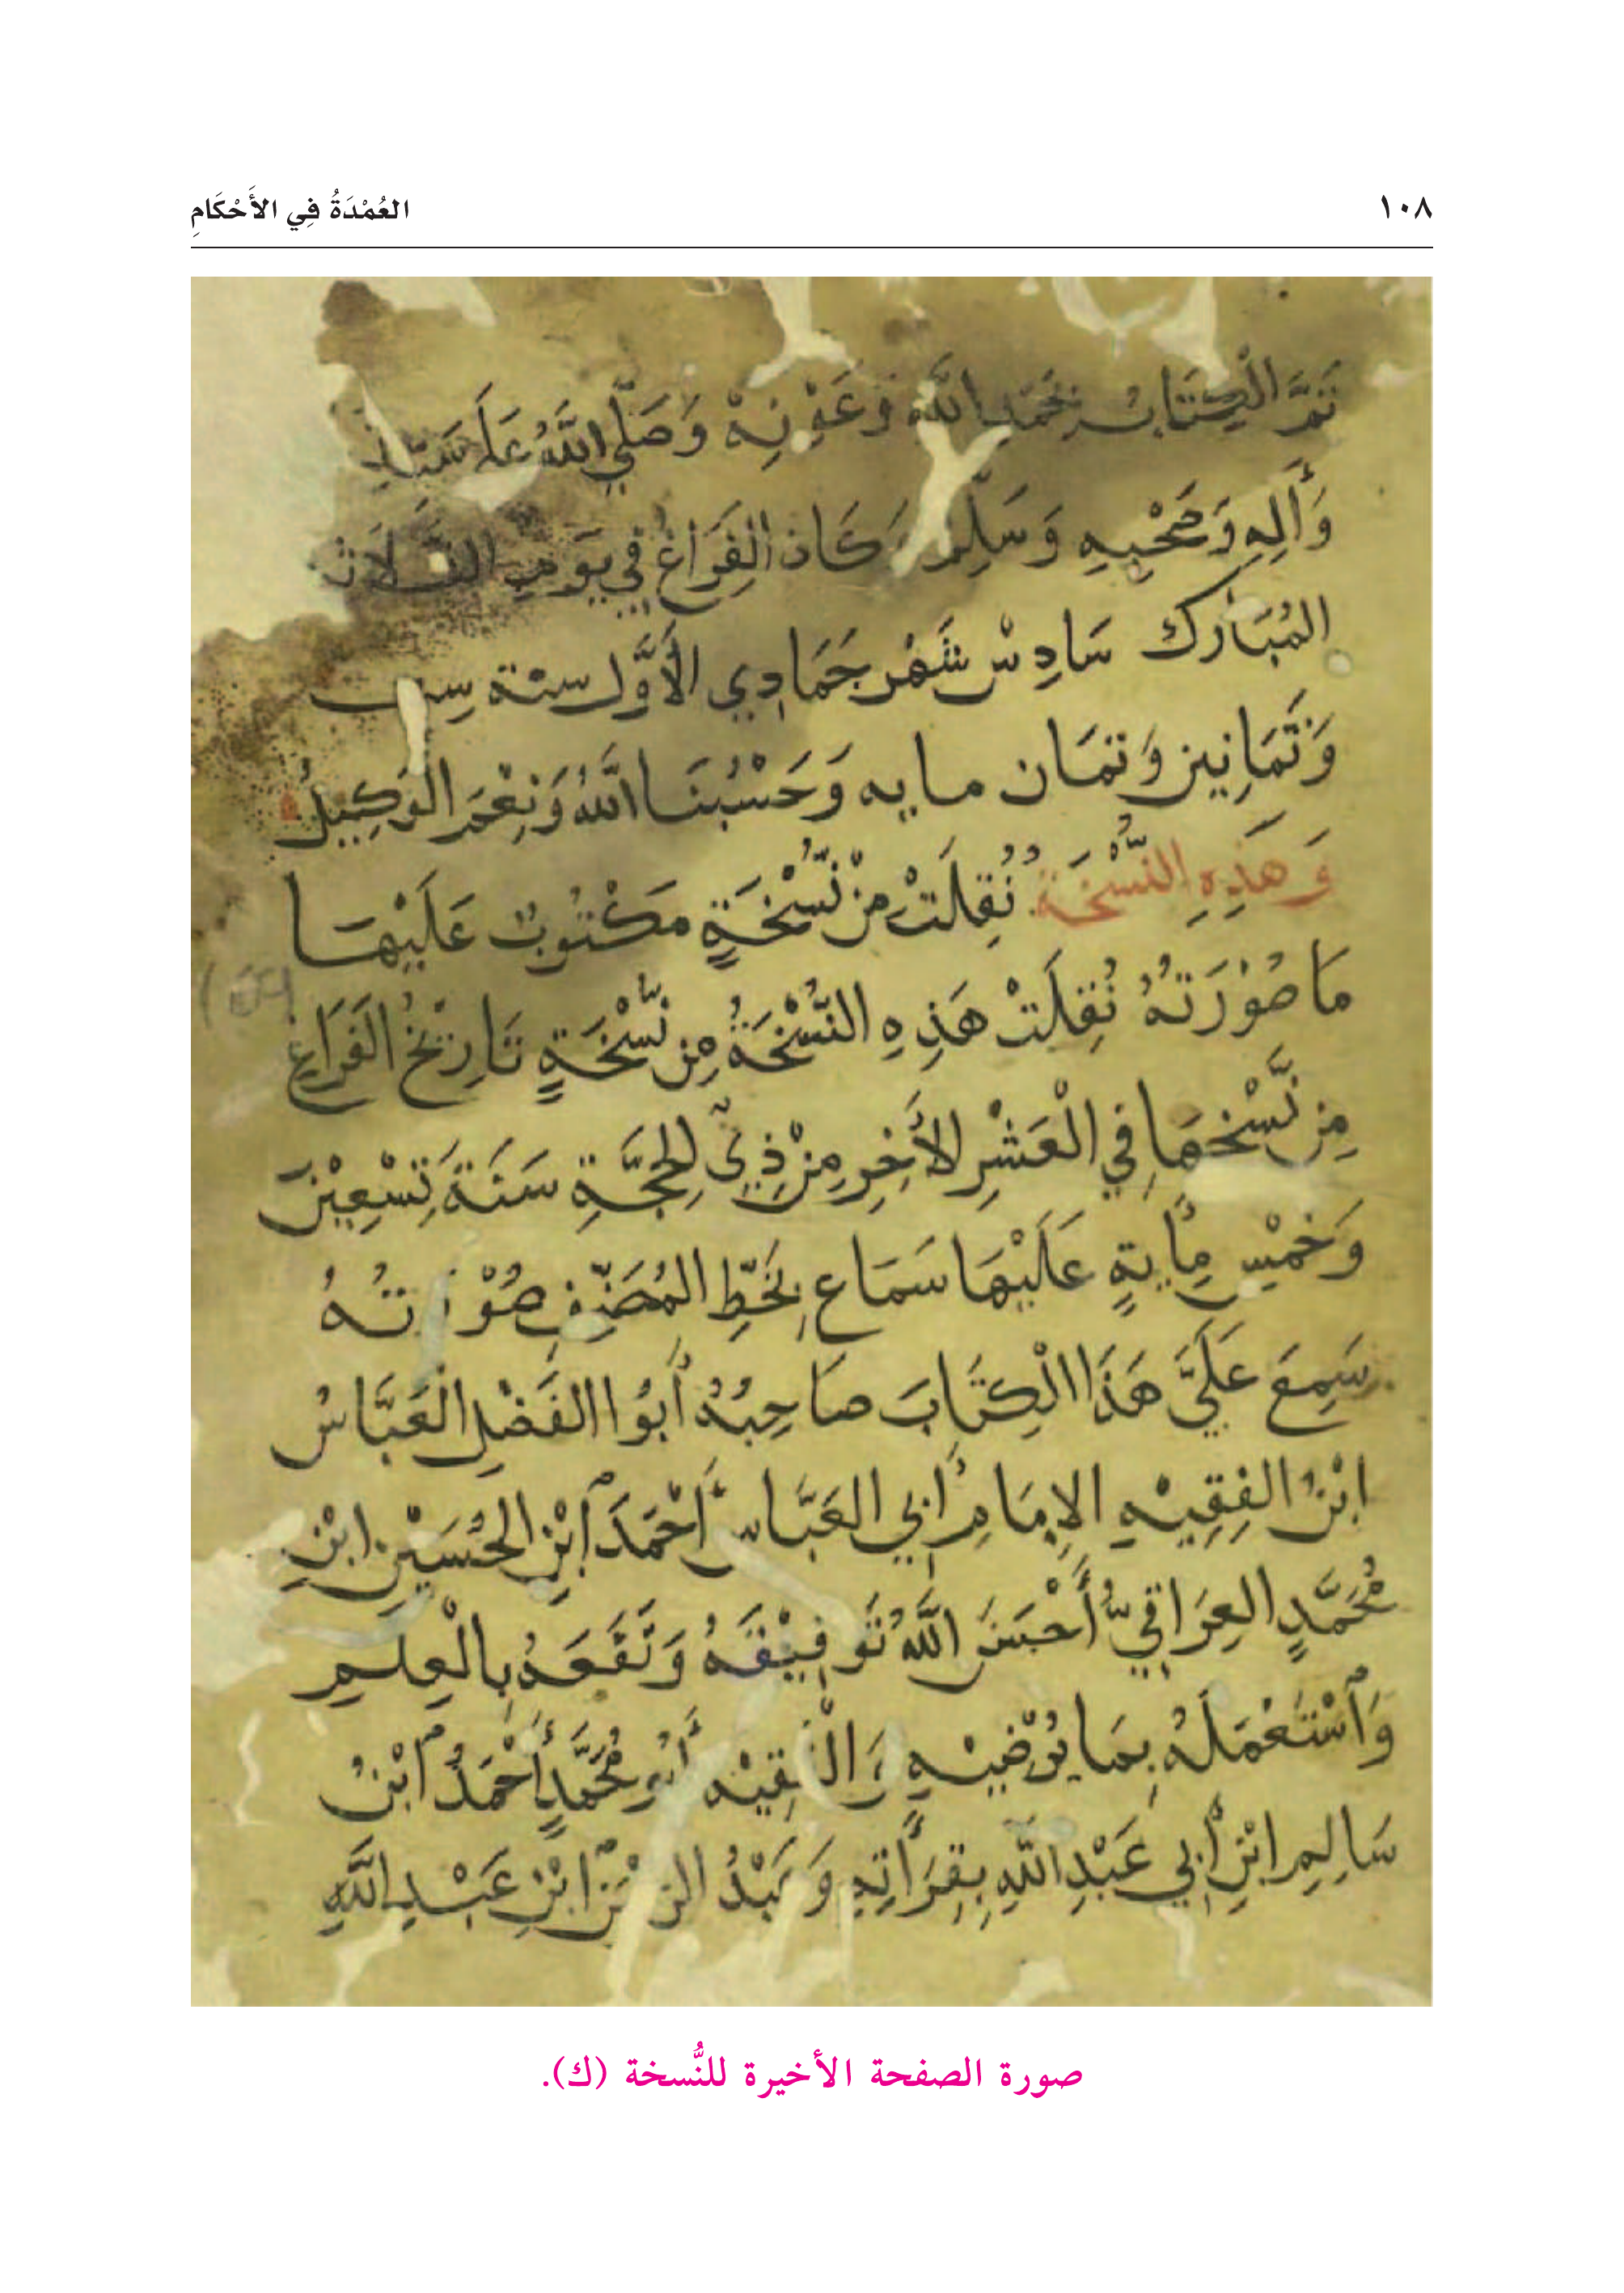 ١٠٨
العُمْدَةُ فِي الأَحْكَامِ
تَمَّ الْكِتَابُ بِحَمْدِ اللَّهِ وَعَوْنِهْ وَصَلَّى اللَّهُ عَلَى
وَأَلِهِ وَصَحْبِهِ وَسَلِّم وَكَانَ الْفِرَاغُ فِي يَوْمِ الثَّلَاثَ
المُبَارَك سَادِسْ شَهْر جَمَادِي الْأَوَّل سنة
وَثَمَانِين وَثمَان مايه وَحَسْبُنَا اللَّهُ وَنِعْمَ الْوَكِيلُ
وَهَذِهِ النُّسْخَةُ نُقِلَتْ مِنْ نُسْخَةٍ مَكْتُوبٌ عَلَيْهَا
مَا صُوْرَتُهُ نُقِلَتْ هَذِهِ النُّسْخَةُ مِن نُسْخَةٍ تَارِيْخُ الفَرَاغِ
مِن نَسْخِهَا فِي الْعَشْرِ الأَخِرِ مِنْ ذِي الحِجَّةِ سَنَةَ تِسْعِيْنَ
وَخَمْسِ مِأيةٍ عَلَيْهَا سَمَاع بِخَطِّ المُصَنِّفِ صُوْرَتُهُ
سَمِعَ عَلَيَّ هَذَا الْكِتَابَ صَاحِبُهُ أَبُوا الفَضْلِ الْعَبَّاسُ
ابْنُ الفِقِيْهِ الإِمَامِ أَبِي العَبَّاسِ أَحْمَدَ ابْنِ الحُسَيْنِ ابْنِ
مُحَمَّدٍ العِرَاقِيّ أَحْسَنَ اللَّهُ تَوفِيْقَهُ وَنَفَعَهُ بِالْعِلمِ
وَاسْتَعْمَلَهُ بِمَا يُرْضِيْهِ وَالْفَقِيْه أَبُو مُحَمَّدٍ أَحْمَدُ ابْنُ
سَالِمِ ابْنِ أَبِي عَبْدِ اللَّهِ بِقِرَأَتِهِ وَعَبْدُ الرحمنِ ابْنِ عَبْدِ اللَّهِ
صورة الصفحة الأخيرة للنُّسخة (ك).